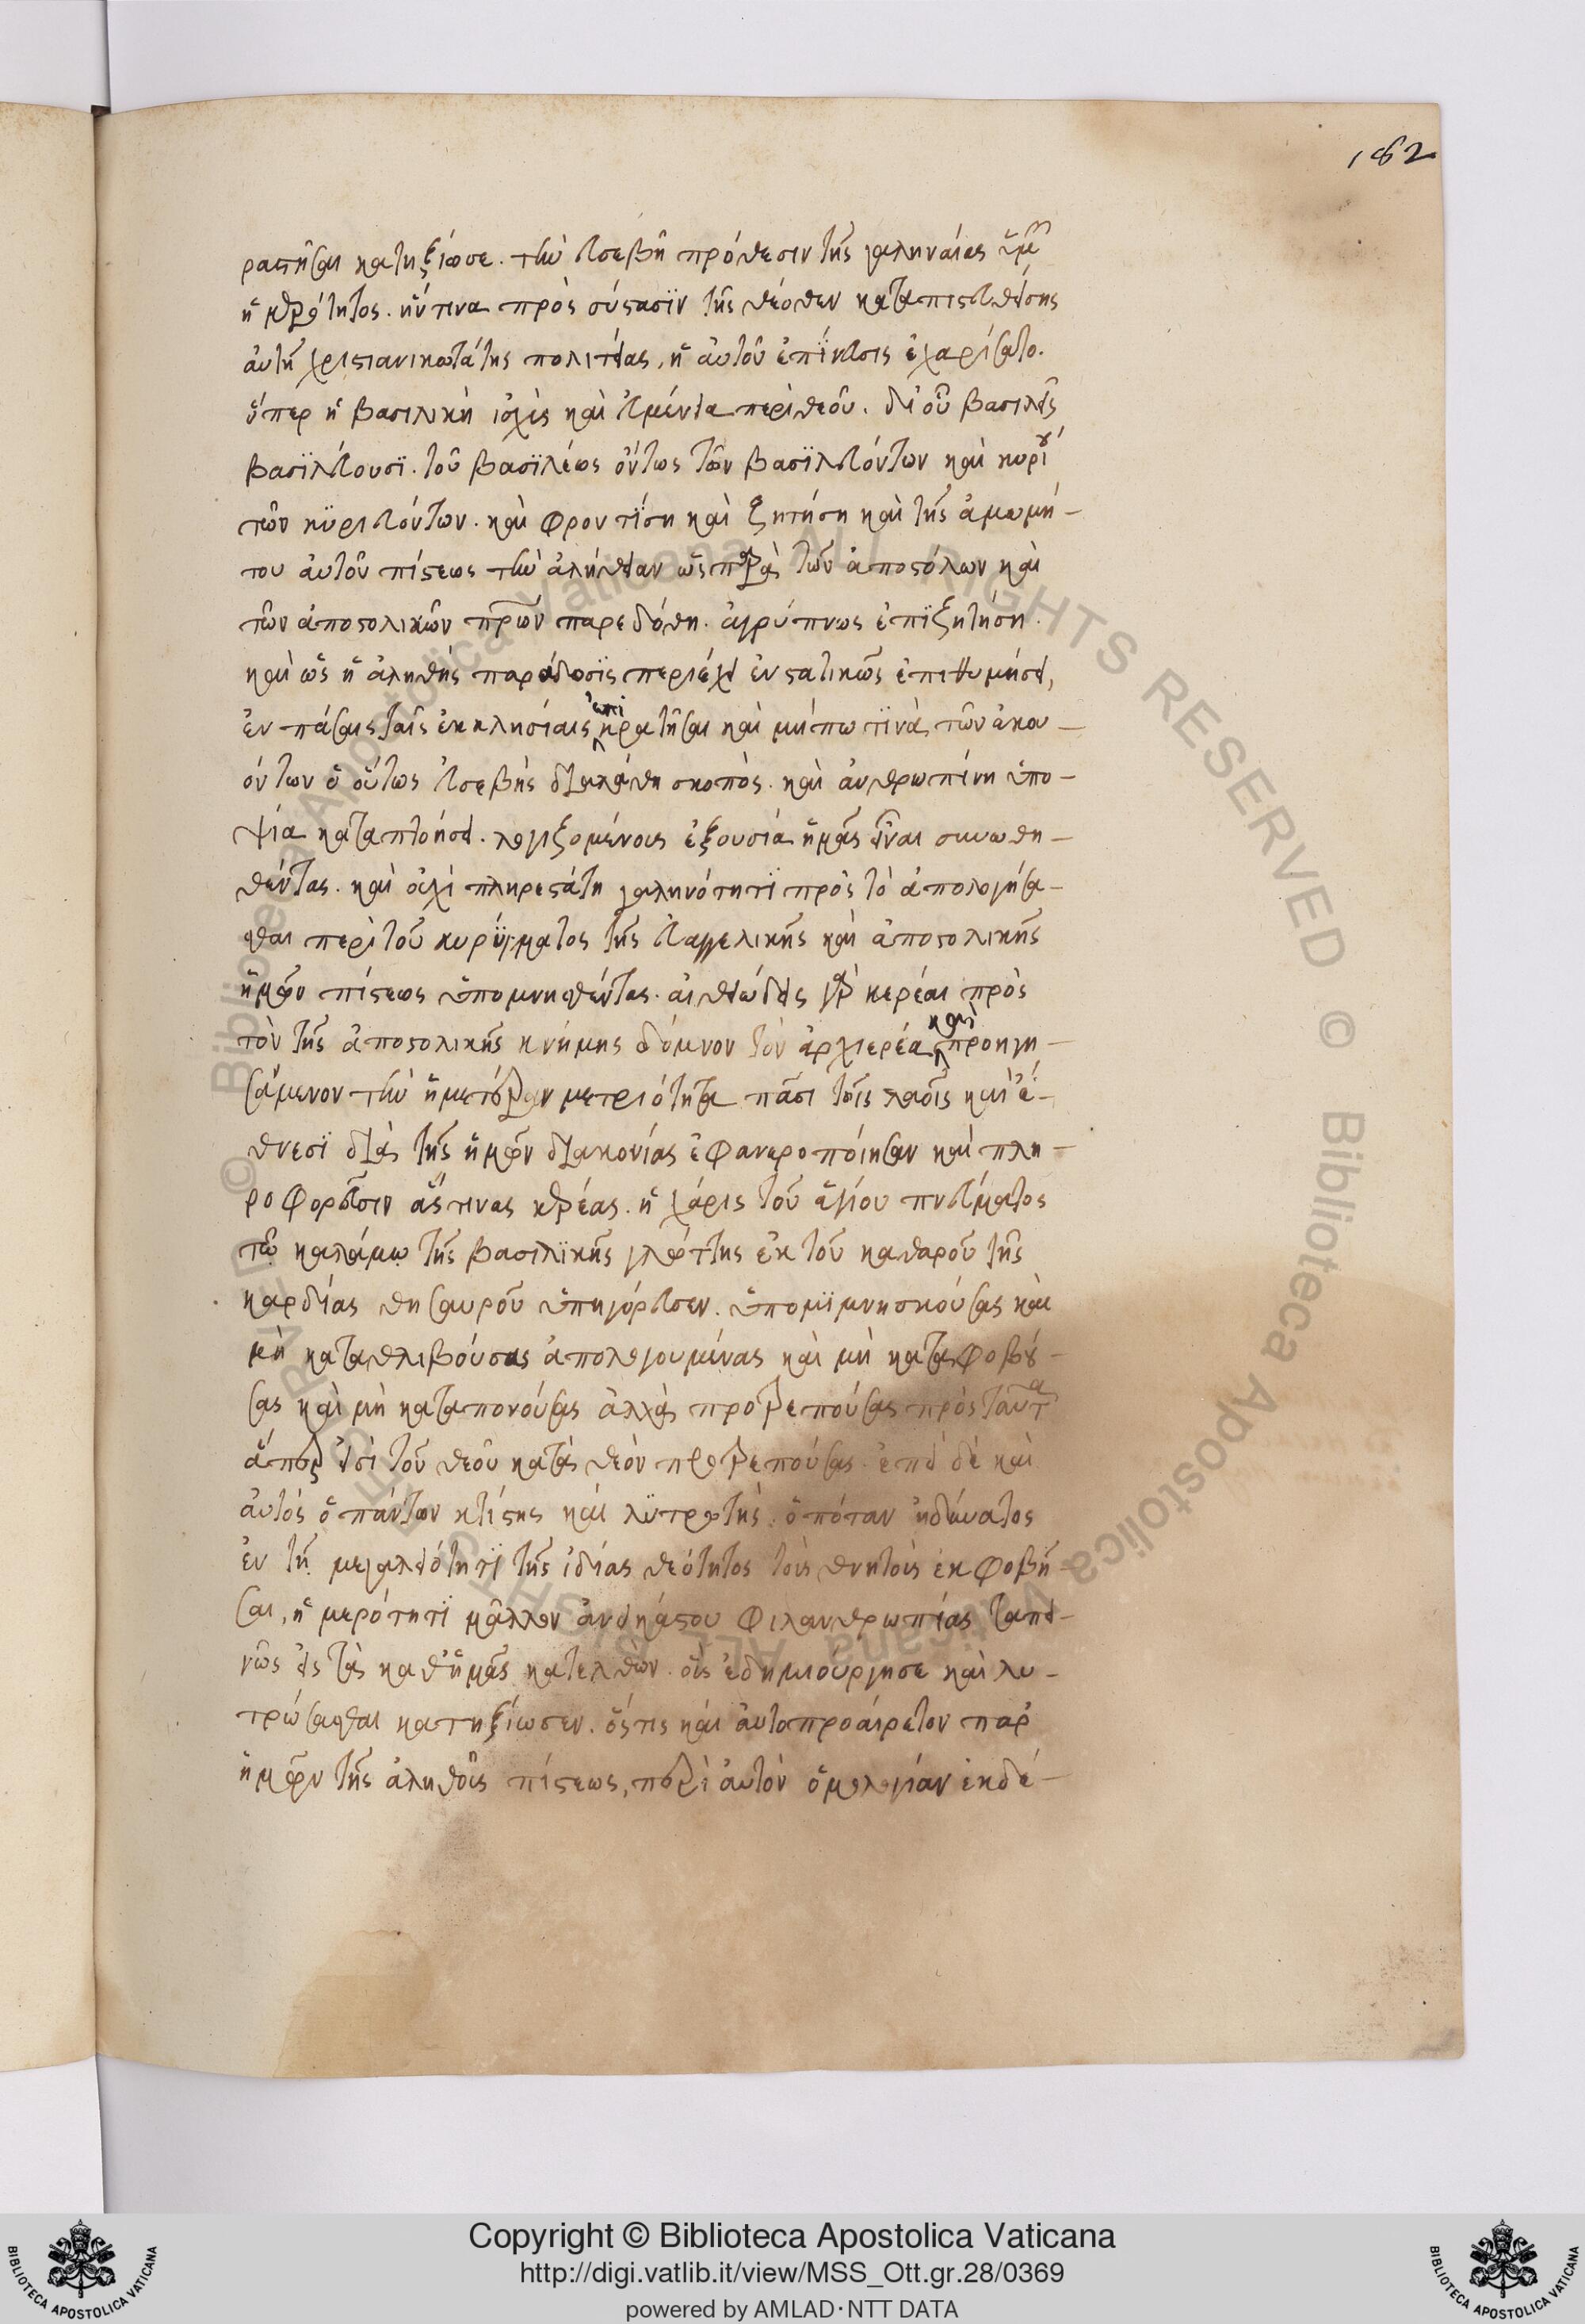 182
ραστῆσαι κατηξίωσε. τὴν εὐσεβῆ πρόθεσιν τῆς γαληναίας ὑμῶν
ἡμερότητος. ἥντινα πρὸς σύστασϊν τῆς θεόθεν καταπιστευθείσης
αὐτῇ χριστιανικωτάτης πολιτείας, ἡ αὐτοῦ ἐπίνευσις ἐχαρίσατο.
ὅπερ ἡ βασιλικὴ ἰσχὺς καὶ εὐμένεια περὶ θεοῦ. δι' οὗ βασιλεῖς
βασϊλεύουσϊ. τοῦ βασϊλέως ὄντως τῶν βασϊλευόντων καὶ κυρίου
τῶν κϋριευόντων. καὶ φροντίση καὶ ζητήση καὶ τῆς ἀμωμή-
του αὐτοῦ πίστεως τὴν ἀλήθειαν ὡς παρὰ τῶν ἀποστόλων καὶ
τῶν ἀποστολικῶν πρ̅ων παρεδόθη. ἀγρύπνως ἐπϊζητήση.
καὶ ὡς ἡ ἀληθὴς παράδοσϊς περιέχει ἐνστατικῶς ἐπιθυμήσει,
ἐν πάσαις ταῖς ἐκκλησίαις ἐπικρατῆσαι καὶ μήπω τϊνὰ τῶν ἀκου-
όντων ὁ οὕτως εὐσεβὴς διαλάθη σκοπὸς. καὶ ἀνθρωπίνη ὑπο-
ψία καταπτοήσει. λογιζομένους ἐξουσία ἡμᾶς εἶναι συνωθη-
θέντας. καὶ οὐχὶ πληρεστάτη γαληνότητϊ πρὸς τὸ ἀπολογήσα-
σθαι περὶ τοῦ κυρήγματος τῆς εὐαγγελικῆς καὶ ἀποστολικῆς
ἡμῶν πίστεως ὑπομνησθέντας. αἱ θειώδεις γὰρ κερέαι πρὸς
τὸν τῆς ἀποστολικῆς μνήμης δόμνον τὸν ἀρχιερέα καὶ προηγη-
σάμενον τὴν ἡμετέραν μετριότητα πᾶσι τοῖς λαοῖς καὶ ἔ-
θνεσϊ διὰ τῆς ἡμῶν διακονίας ἐφανεροποίησαν καὶ πλη-
ροφορεῦσιν ἅς τινας κερέας. ἡ χάρις τοῦ ἁγίου πνεύματος
τῷ καλάμῳ τῆς βασιλϊκῆς γλώττης ἐκ τοῦ καθαροῦ τῆς
καρδίας θησαυροῦ ὑπηγόρευσεν. ὑπομϊμνησκούσας καὶ
μὴ καταθλιβούσας ἀπολογουμένας καὶ μὴ καταφοβού-
σας καὶ μὴ καταπονούσας ἀλλὰ προτρεπούσας πρὸς ταῦτα
ἅπερ εἰσὶ τοῦ θεοῦ κατὰ θεὸν προτρεπούσας. ἐπεὶ δὲ καὶ
αὐτὸς ὁ πάντων κτίστης καὶ λϋτρωτὴς. ὁπόταν ἠδύνατος
ἐν τῇ μεγαλειότητϊ τῆς ἰδίας θεότητος τοὺς θνητοὺς ἐκφοβῆ-
σαι, ἡμερότητϊ μᾶλλον ἀνεικάστου φιλανθρωπίας ταπει-
νῶς εἰς τὰς καθ' ἡμᾶς κατελθὼν. οὓς ἐδημιούργησε καὶ λυ-
τρώσασθαι κατηξίωσεν. ὅς τις καὶ αὐτοπροαίρετον παρ'
ἡμῶν τῆς ἀληθοῦς πίστεως, περὶ αὐτὸν ὁμολογίαν ἐκδέ-
Copyright © Biblioteca Apostolica Vaticana
http://digi.vatlib.it/view/MSS_Ott.gr.28/0369
powered by AMLAD·NTT DATA